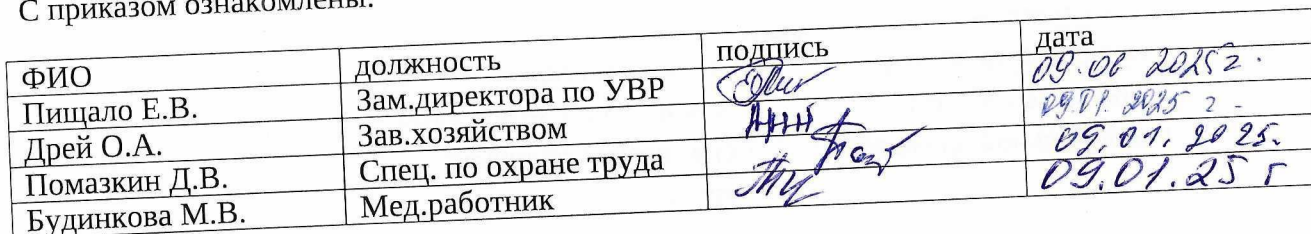 С приказом ознакомлены:
ФИО должность подпись дата
Пищало Е.В. Зам.директора по УВР 09.06 2025г.
Дрей О.А. Зав.хозяйством 09.01.2025 г.
Помазкин Д.В. Спец. по охране труда 09.01.2025.
Будинкова М.В. Мед.работник 09.01.25 г